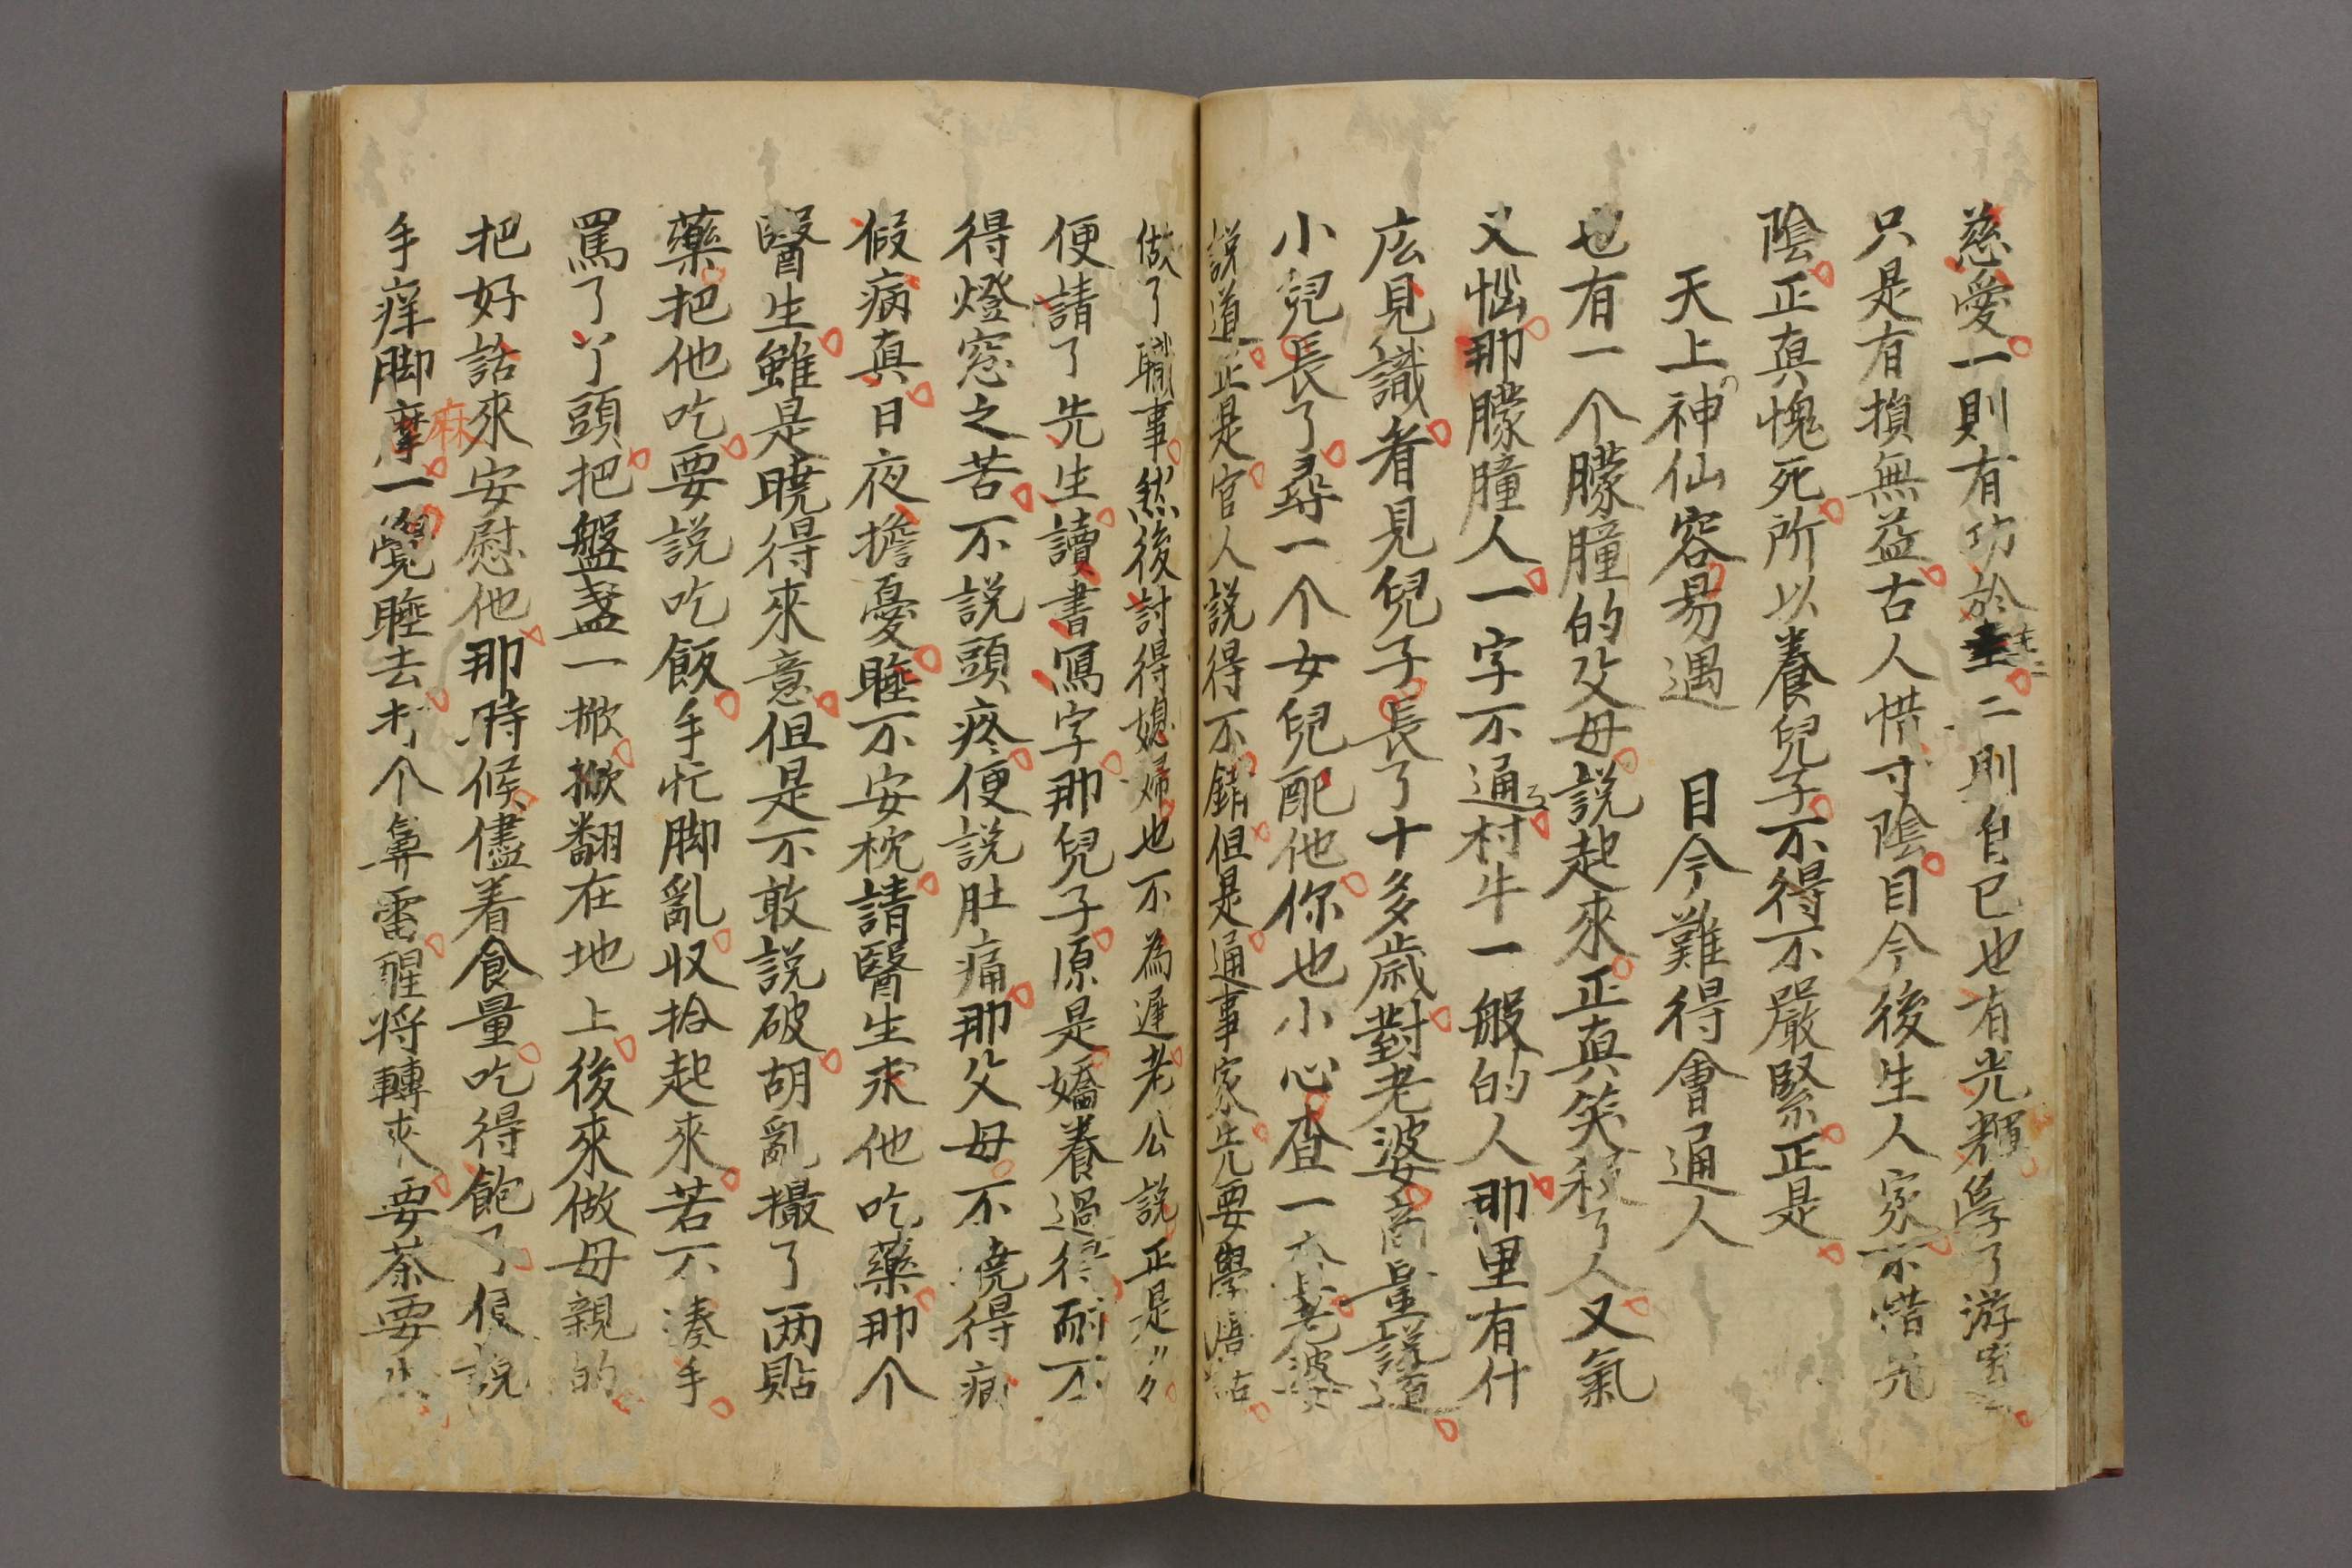 慈愛一則有功於主二則自己也有光輝學了游
只是有損無益古人惜寸陰目今後生人家不惜光
陰正真愧死所以養兒子不得不嚴緊正是
天上神仙容易遇　目今難得會通人
也有一个朦朣的父母説起來正真笑殺了人又氣
又惱那朦朣人一字不通村牛一般的人那里有什
庅見識看見兒子長了十多歲對老婆商量説道
小兒長了尋一个女兒配他你也小心查一查老婆
説道正是官人説得不錯但是通事家先要學唐話
做了職事然後討得媳婦也不為遲老公説正是〃々
便請了先生讀書寫字那兒子原是嬌養過得耐不
得燈窓之苦不説頭疼便説肚痛那父母不曉得病
假病真日夜擔憂睡不安枕請醫生求他吃藥那个
醫生雖是曉得來意但是不敢説破胡亂撮了两貼
藥把他吃要説吃飯手忙脚亂収拾起來若不湊手
罵了丫頭把盤盞一掀掀翻在地上後來做母親的
把好話來安慰他那時候儘着食量吃得飽了便説
手痒脚摩麻一覺睡去打个鼻雷醒將轉來要茶要